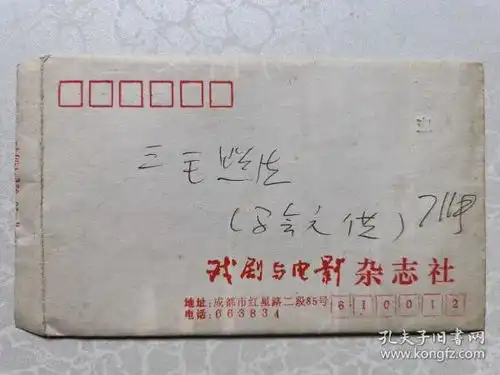 三毛照片
戏剧与电影 杂志社
地址:成都市红星路二段85号 610012
电话:663834
孔夫子旧书网
www.kongfz.com